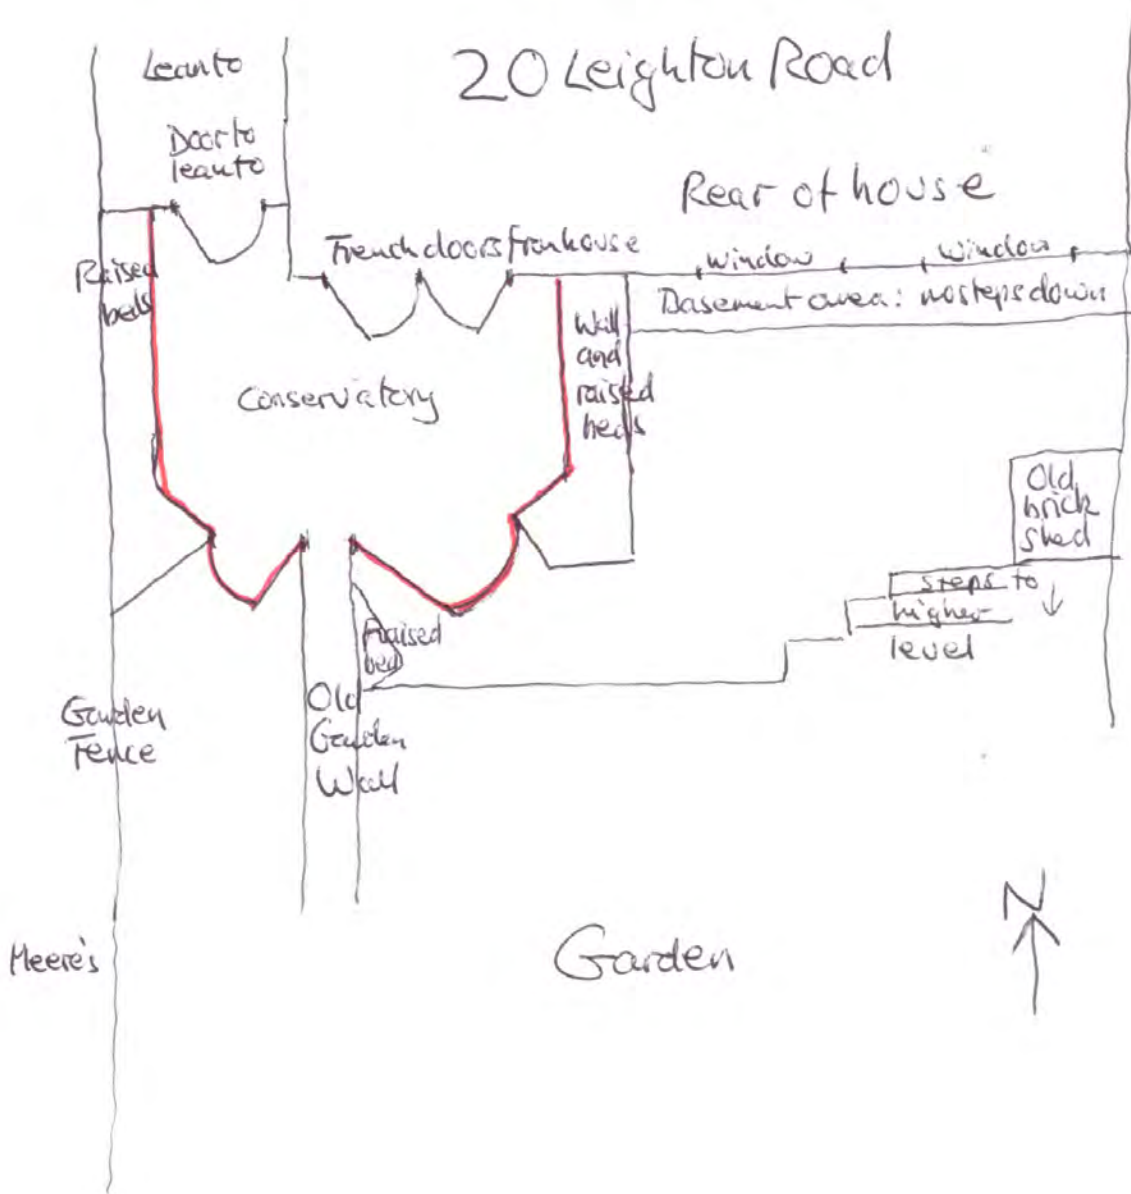 Leanto
20 Leighton Road
Door to
leanto
Rear of house
French doors from house
Window
Window
Raised
beds
Basement area: no steps down
Wall
and
raised
beds
Conservatory
Old
brick
shed
steps to
higher
level
Raised
bed
Garden
Fence
Old
Garden
Wall
N
Meere's
Garden